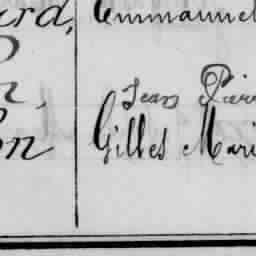 ard, Emmanuel
n, Jean Pierr
on Gilles Mari